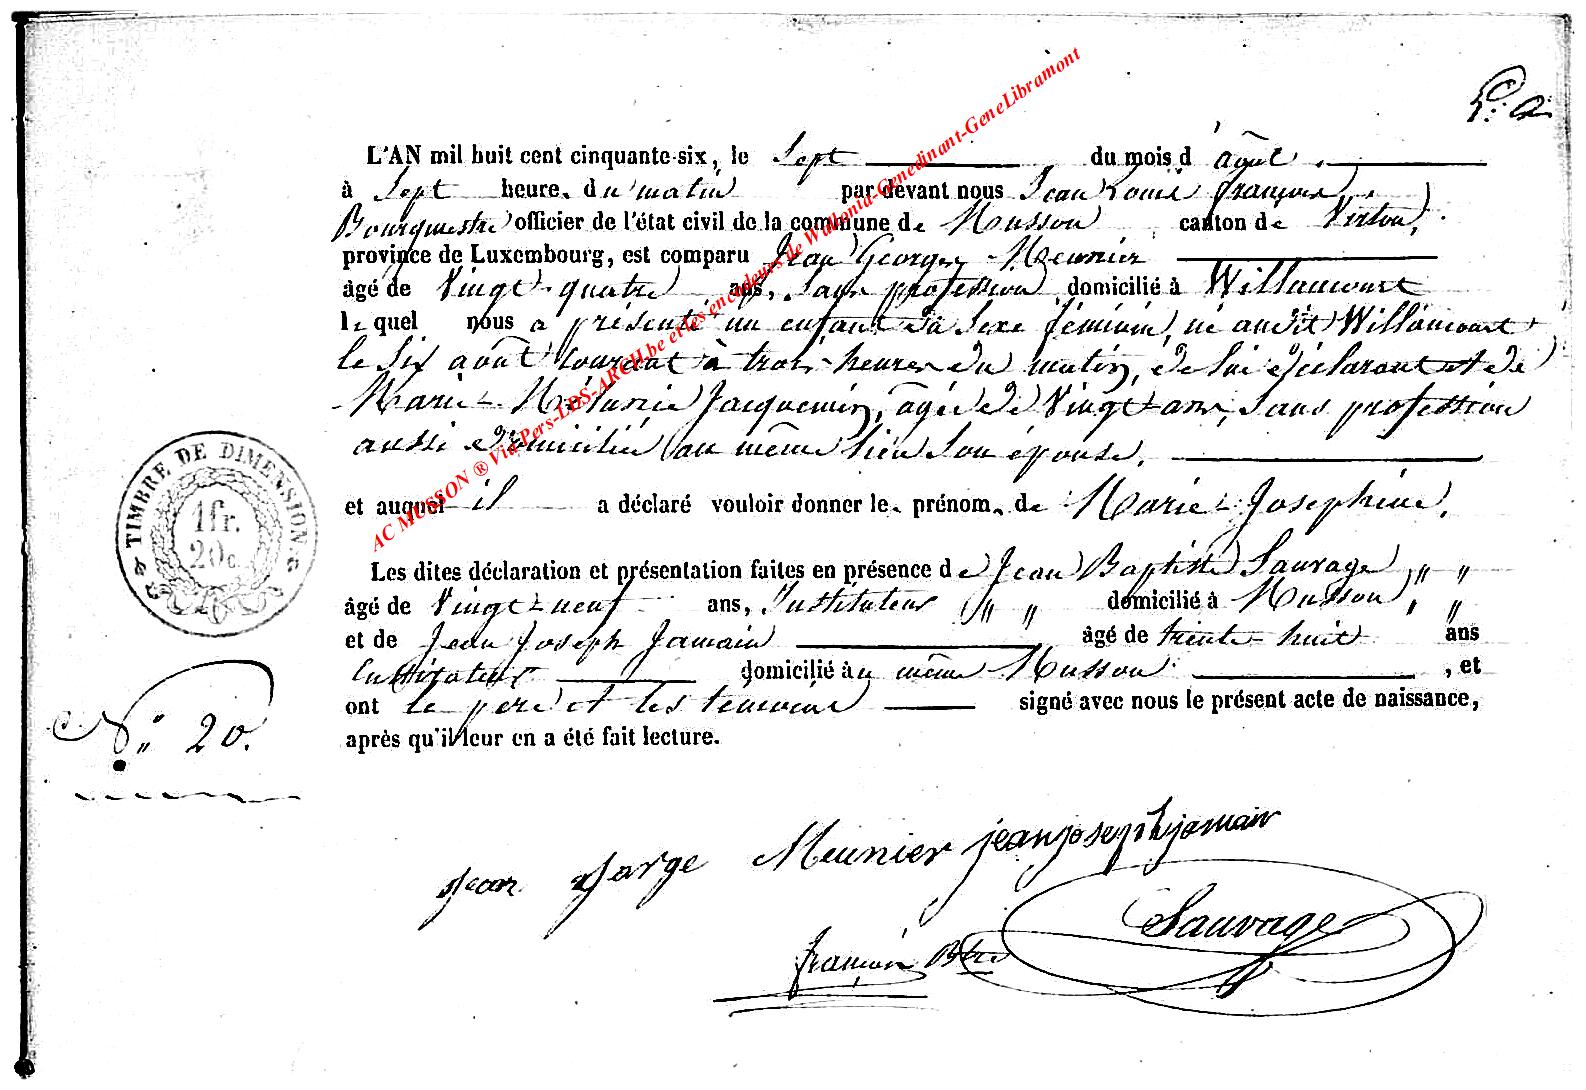 L'AN mil huit cent cinquante-six, le Sept du mois d'août
à Sept heure. du matin par devant nous Jean Louis françois,
Bourgmestre officier de l'état civil de la commune de Musson canton de Virton,
province de Luxembourg, est comparu Jean George Meunier
âgé de Vingt-quatre ans, Sans profession domicilié à Willancourt
lequel nous a présenté un enfant du Sexe féminin, né audit Willancourt
le Six août courant à trois heures du matin, de lui déclarant et de
Marie-Mélanie Jacquemin, âgée de Vingt ans, Sans profession
aussi domiciliée au même lieu Son épouse.
et auquel il a déclaré vouloir donner le. prénom. de Marie-Joséphine.
Les dites déclaration et présentation faites en présence de Jean Baptiste Sauvage, " "
âgé de Vingt-neuf ans, Instituteur " " domicilié à Musson, "
et de Jean Joseph Jamain âgé de trente-huit ans
Cultivateur domicilié au même Musson , et
ont le père et les témoins signé avec nous le présent acte de naissance,
après qu'il leur en a été fait lecture.
TIMBRE DE DIMENSION
1fr.
20c
N° 20.
Jean Jorge Meunier jean joseph jamain
Sauvage
françois Btre
AC MUSSON ® Via Pers-LDS-ARCH.be et les encodeurs de Wallonia-Genedinant-GeneLibramont